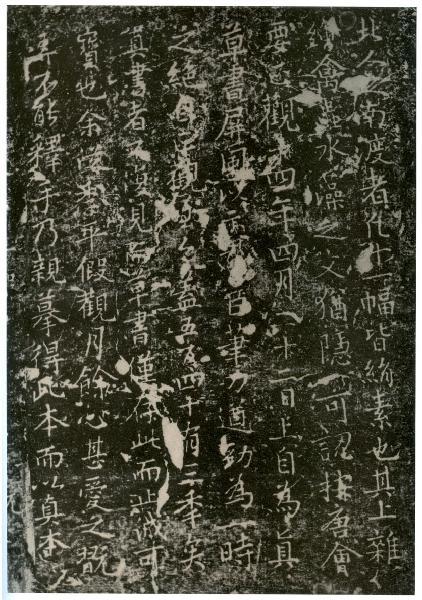 北人之南渡者凡十一幅皆絹素也其上雜
繪禽獸水藻之文猶隱可認按唐會
要貞觀十四年四月二十二日上自為真
草書屏風以示群臣筆力遒勁為一時
之絕自貞觀至今盖五百四十有三年矣
真書者不復見而草書僅存此而誠可
寶也余假觀月餘心甚愛之翫
弄不能釋手乃親摹得此本而以真本